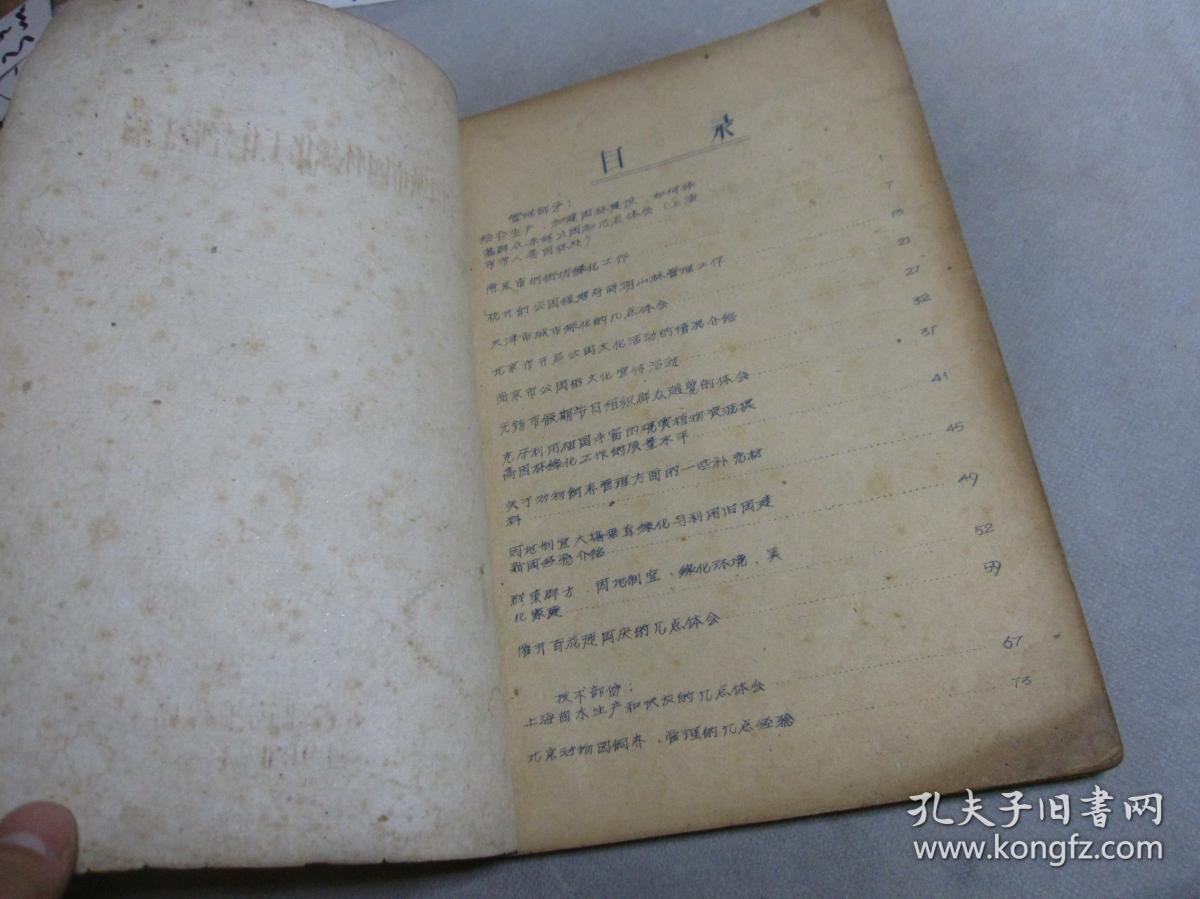 目 录
管理部分：
结合生产、加速园林建设、如何依
靠群众办好公园的几点体会（上海
市市人委园林处） 7
南京市的街坊绿化工作 15
杭州的公园经营与西湖山林管理工作 21
天津市城市绿化的几点体会 27
北京市开启公园文化活动的情况介绍 32
南京市公园的文化宣传活动 37
无锡市假期节日组织群众游览的体会 41
充分利用祖国丰富的观赏植物资源提
高园林绿化工作的质量水平 45
关于动物饲养管理方面的一些补充材
料 49
因地制宜大搞垂直绿化与利用旧园建
新园经验介绍 52
群策群力、因地制宜、绿化环境、美
化家庭 59
催开百花迎国庆的几点体会
技术部份：
上海苗木生产和供应的几点体会 67
北京动物园饲养、管理的几点经验 73
孔夫子旧书网
www.kongfz.com